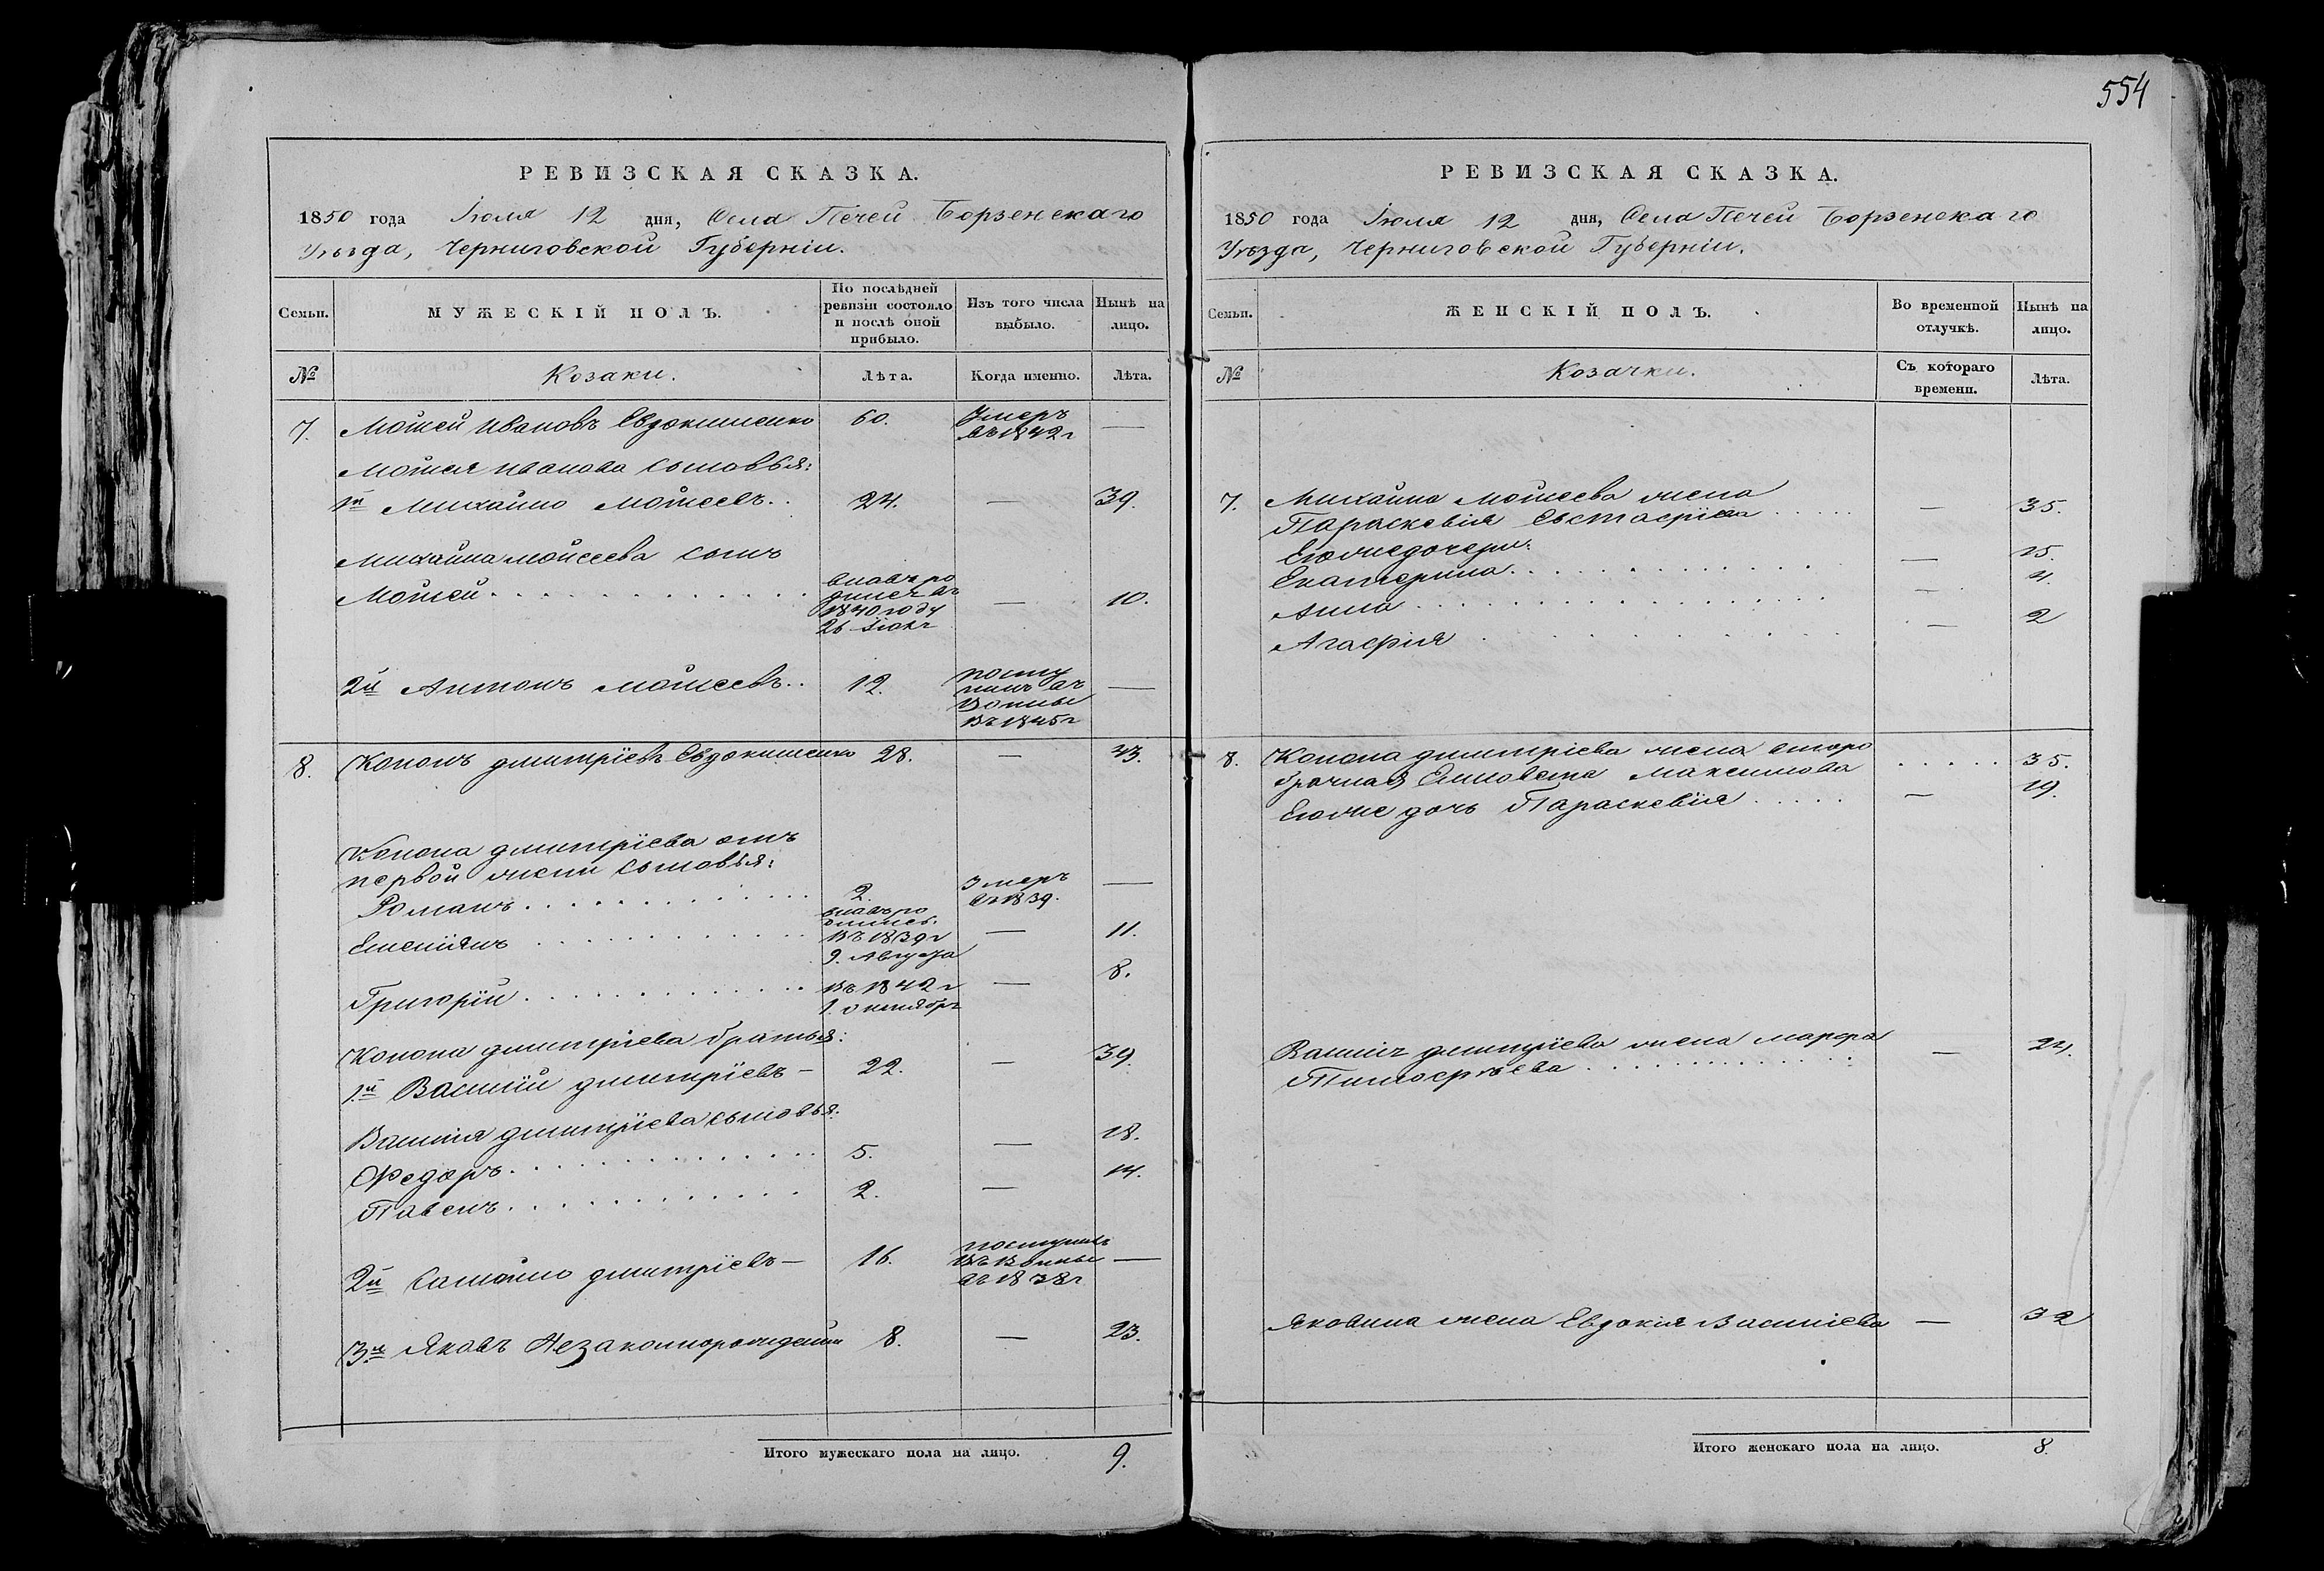 554
РЕВИЗСКАЯ СКАЗКА.
1850 года Іюля 12 дня, Села Печей Борзенскаго
Уѣзда, Черниговской Губерніи.
Семьи.
МУЖЕСКІЙ ПОЛЪ.
По послѣдней
ревизіи состояло
и послѣ оной
прибыло.
Изъ того числа
выбыло.
Нынѣ на
лицо.
№
Козаки.
Лѣта.
Когда именно.
Лѣта.
7. Мойсей Ивановъ Евдокименко 60. Умеръ
въ 1842 г —
Мойсея Иванова сыновья:
1й Михайло Мойсеевъ.. 24. — 39.
Михайла Мойсеева сынъ
Мойсей 10.
вновь ро
дился въ
1840 году
26
2й Антонъ Мойсеевъ.. 12. —
посту
пилъ въ
Воины
въ 1845 г
8. Кононъ Дмитріевъ Евдокименко 28. — 43.
Конона Дмитріева отъ
первой жены сыновья:
Романъ 2. Умеръ
въ 1839. —
Емеліянъ — 11.
вновь ро
дились.
въ 1839 г
9. Августа
Григорій въ 1842 г — 8.
1. октябр
Конона Дмитріева братья:
1й Василій Дмитріевъ — 22. — 39.
Василія Дмитріева сыновья:
Федоръ 5. — 18.
Павелъ 2. — 14.
2й Самойло Дмитріевъ — 16. поступилъ
въ Воины
въ 1838 г —
3й Яковъ Незаконнорожденный 8. — 23.
Итого мужескаго пола на лицо. 9.
РЕВИЗСКАЯ СКАЗКА.
1850 года Іюля 12 дня, Села Печей Борзенскаго
Уѣзда, Черниговской Губерніи.
Семьи.
ЖЕНСКІЙ ПОЛЪ.
Во временной
отлучкѣ.
Нынѣ на
лицо.
№
Козачки.
Съ котораго
времени.
Лѣта.
7. Михайла Мойсеева жена
Параскевія Евстафіева — 35.
Егоже дочери:
Екатерина — 15.
Анна — 4.
Агафія — 2
8. Конона Дмитріева жена второ
брачная Елисовета Максимова 35.
Егоже дочь Параскевія — 19.
Василія Дмитріева жена Марфа
Тимофѣева — 24.
Яковина жена Евдокія Василіева — 32
Итого женскаго пола на лицо. 8.